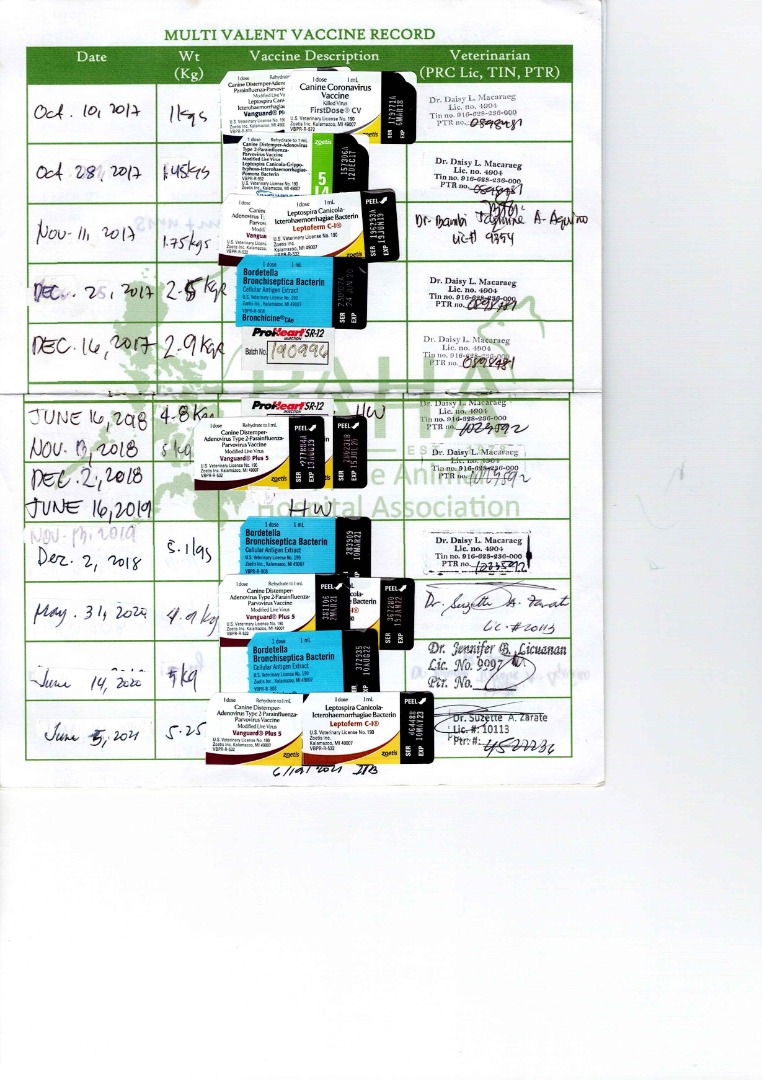 MULTI VALENT VACCINE RECORD
Date Wt (Kg) Vaccine Description Veterinarian (PRC Lic, TIN, PTR)
Oct. 10, 2017 1kgs
1 dose Rehydrate
Canine Distemper-Aden
Parainfluenza-Parvovir
Modified Live Vi
Leptospira Cani
Icterohaemorrhagiae
Vanguard® Pl
1 dose 1 mL
Canine Coronavirus
Vaccine
Killed Virus
FirstDose® CV
U.S. Veterinary License No. 190
Zoetis Inc. Kalamazoo, MI 49007
VBPR-R-522
zoetis
SER 179771A
EXP 6MAR18
Dr. Daisy L. Macaraeg
Lic. no. 4904
Tin no. 916-628-236-000
PTR no. 0898481
Oct. 28, 2017 1.45kgs
1 dose Rehydrate to 1 mL
Canine Distemper-Adenovirus
Type 2-Parainfluenza-
Parvovirus Vaccine
Modified Live Virus
Leptospira Canicola-Grippo-
typhosa-Icterohaemorrhagiae-
Pomona Bacterin
U.S. Veterinary License No. 190
Zoetis Inc., Kalamazoo, MI 49007
zoetis
5
L4
Dr. Daisy L. Macaraeg
Lic. no. 4904
Tin no. 916-628-236-000
PTR no.
Nov. 11, 2017 1.75kgs
Leptospira Canicola-
Icterohaemorrhagiae Bacterin
Leptoferm C-I®
U.S. Veterinary License No. 190
Zoetis Inc.
Kalamazoo, MI 49007
VBPR-R-532
PEEL
SER 196293A
EXP 19JUN19
Dr. Bambi Jasmine A. Aquino
Lic# 9354
DEC. 2, 2017 2.5 kgs
1 dose 1 mL
Bordetella
Bronchiseptica Bacterin
Cellular Antigen Extract
U.S. Veterinary License No. 190
Zoetis Inc., Kalamazoo, MI 49007
VBPR-R-908
Bronchicine® CAe
SER
EXP
Dr. Daisy L. Macaraeg
Lic. no. 4904
Tin no. 916-628-236-000
PTR no. 0898481
DEC. 16, 2017 2.9 kgs
ProHeart® SR-12
INJECTION
Batch No. 190996
Dr. Daisy L. Macaraeg
Lic. no. 4904
Tin no. 916-628-236-000
PTR no. 0898481
PAHA
Hospital Association
JUNE 16, 2018 4.8 Kgs
ProHeart® SR-12
INJECTION
HW
Dr. Daisy L. Macaraeg
Lic. no. 4904
Tin no. 916-628-236-000
PTR no.
NOV. 13, 2018 5 kg
1 dose Rehydrate to 1 mL
Canine Distemper-
Adenovirus Type 2-Parainfluenza-
Parvovirus Vaccine
Modified Live Virus
Vanguard® Plus 5
U.S. Veterinary License No. 190
Zoetis Inc. Kalamazoo, MI 49007
VBPR-R-522
zoetis
PEEL
SER 277884A
EXP 13AUG19
PEEL
SER
EXP
Dr. Daisy L. Macaraeg
Lic. no. 4904
Tin no. 916-628-236-000
PTR no.
DEC. 2, 2018
JUNE 16, 2019 HW
NOV. 13, 2019
Dec. 2, 2018 5.1 kgs
1 dose 1 mL
Bordetella
Bronchiseptica Bacterin
Cellular Antigen Extract
U.S. Veterinary License No. 190
Zoetis Inc., Kalamazoo, MI 49007
VBPR-R-908
SER
EXP 10MAR21
Dr. Daisy L. Macaraeg
Lic. no. 4904
Tin no. 916-628-236-000
PTR no.
May. 31, 2020
1 dose Rehydrate to 1 mL
Canine Distemper-
Adenovirus Type 2-Parainfluenza-
Parvovirus Vaccine
Modified Live Virus
Vanguard® Plus 5
U.S. Veterinary License No. 190
Zoetis Inc. Kalamazoo, MI 49007
VBPR-R-522
zoetis
PEEL
SER 381106
EXP 2MAR21
PEEL
SER 367280
EXP 19JAN22
Dr. Suzette A. Zarate
LIC. # 10113
June 14, 2020 5kg
1 dose 1 mL
Bordetella
Bronchiseptica Bacterin
Cellular Antigen Extract
U.S. Veterinary License No. 190
Zoetis Inc., Kalamazoo, MI 49007
VBPR-R-908
SER 372935
EXP 10AUG22
Dr. Jennifer B. Licuanan
Lic. No. 9097
Ptr. No.
June 5, 2021 5.25
1 dose Rehydrate to 1 mL
Canine Distemper-
Adenovirus Type 2-Parainfluenza-
Parvovirus Vaccine
Modified Live Virus
Vanguard® Plus 5
U.S. Veterinary License No. 190
Zoetis Inc. Kalamazoo, MI 49007
VBPR-R-522
1 dose 1 mL
Leptospira Canicola-
Icterohaemorrhagiae Bacterin
Leptoferm C-I®
U.S. Veterinary License No. 190
Zoetis Inc.
Kalamazoo, MI 49007
VBPR-R-532
zoetis
PEEL
SER 464488
EXP 10MAY23
Dr. Suzette A. Zarate
Lic. #: 10113
Ptr: #: 4522236
6/19/2021